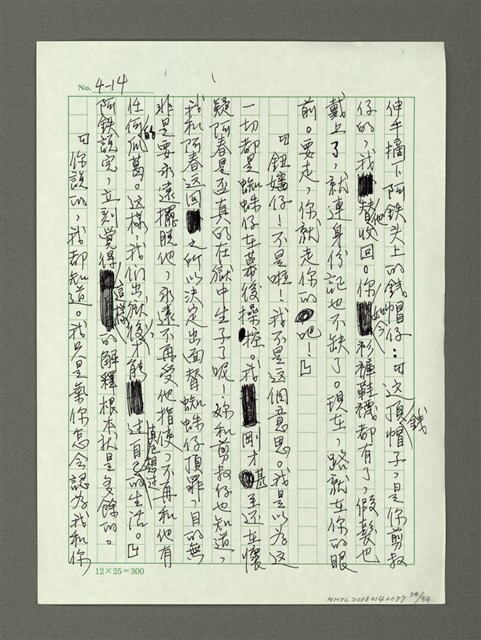 No. 4-14
伸手摘下阿鉄头上的錢帽仔:「这頂帽子,是你剪叔
仔的,我替他收回。你如今衫褲鞋襪都有了,假髮也
戴上了,就連身份記也不缺了。現在,路就在你的眼
前。要走,你就走你的吧!」
「鈕嬸仔!不是啦!我不是这個意思。我是以為这
一切都是蜘蛛仔在幕後操控。我剛才甚至还在懷
疑阿春是否真的在獄中生子了呢!妳和剪叔仔也知道,
我和阿春这回之所以決定出面替蜘蛛仔頂罪,目的無
非是要永遠擺脱他,永遠不再受他指使,不再和他有
任何的瓜葛。这樣,我们出獄後才能真正过自己的生活。」
阿鉄說完,立刻覺得這樣的解釋根本就是多餘的。
「你說的,我都知道。我只是氣你怎会認為我和你
12×25=300
NMTL20180140077 24/94